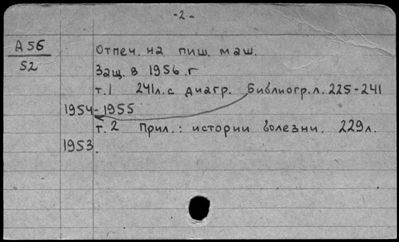 -2-
А56
52
Отпеч. на пиш. маш.
Защ. в 1956.г
т.1 241л.с диагр. Библиогр.л. 225-241
1954-1955
т. 2 Прил.: истории болезни. 229л.
1953.